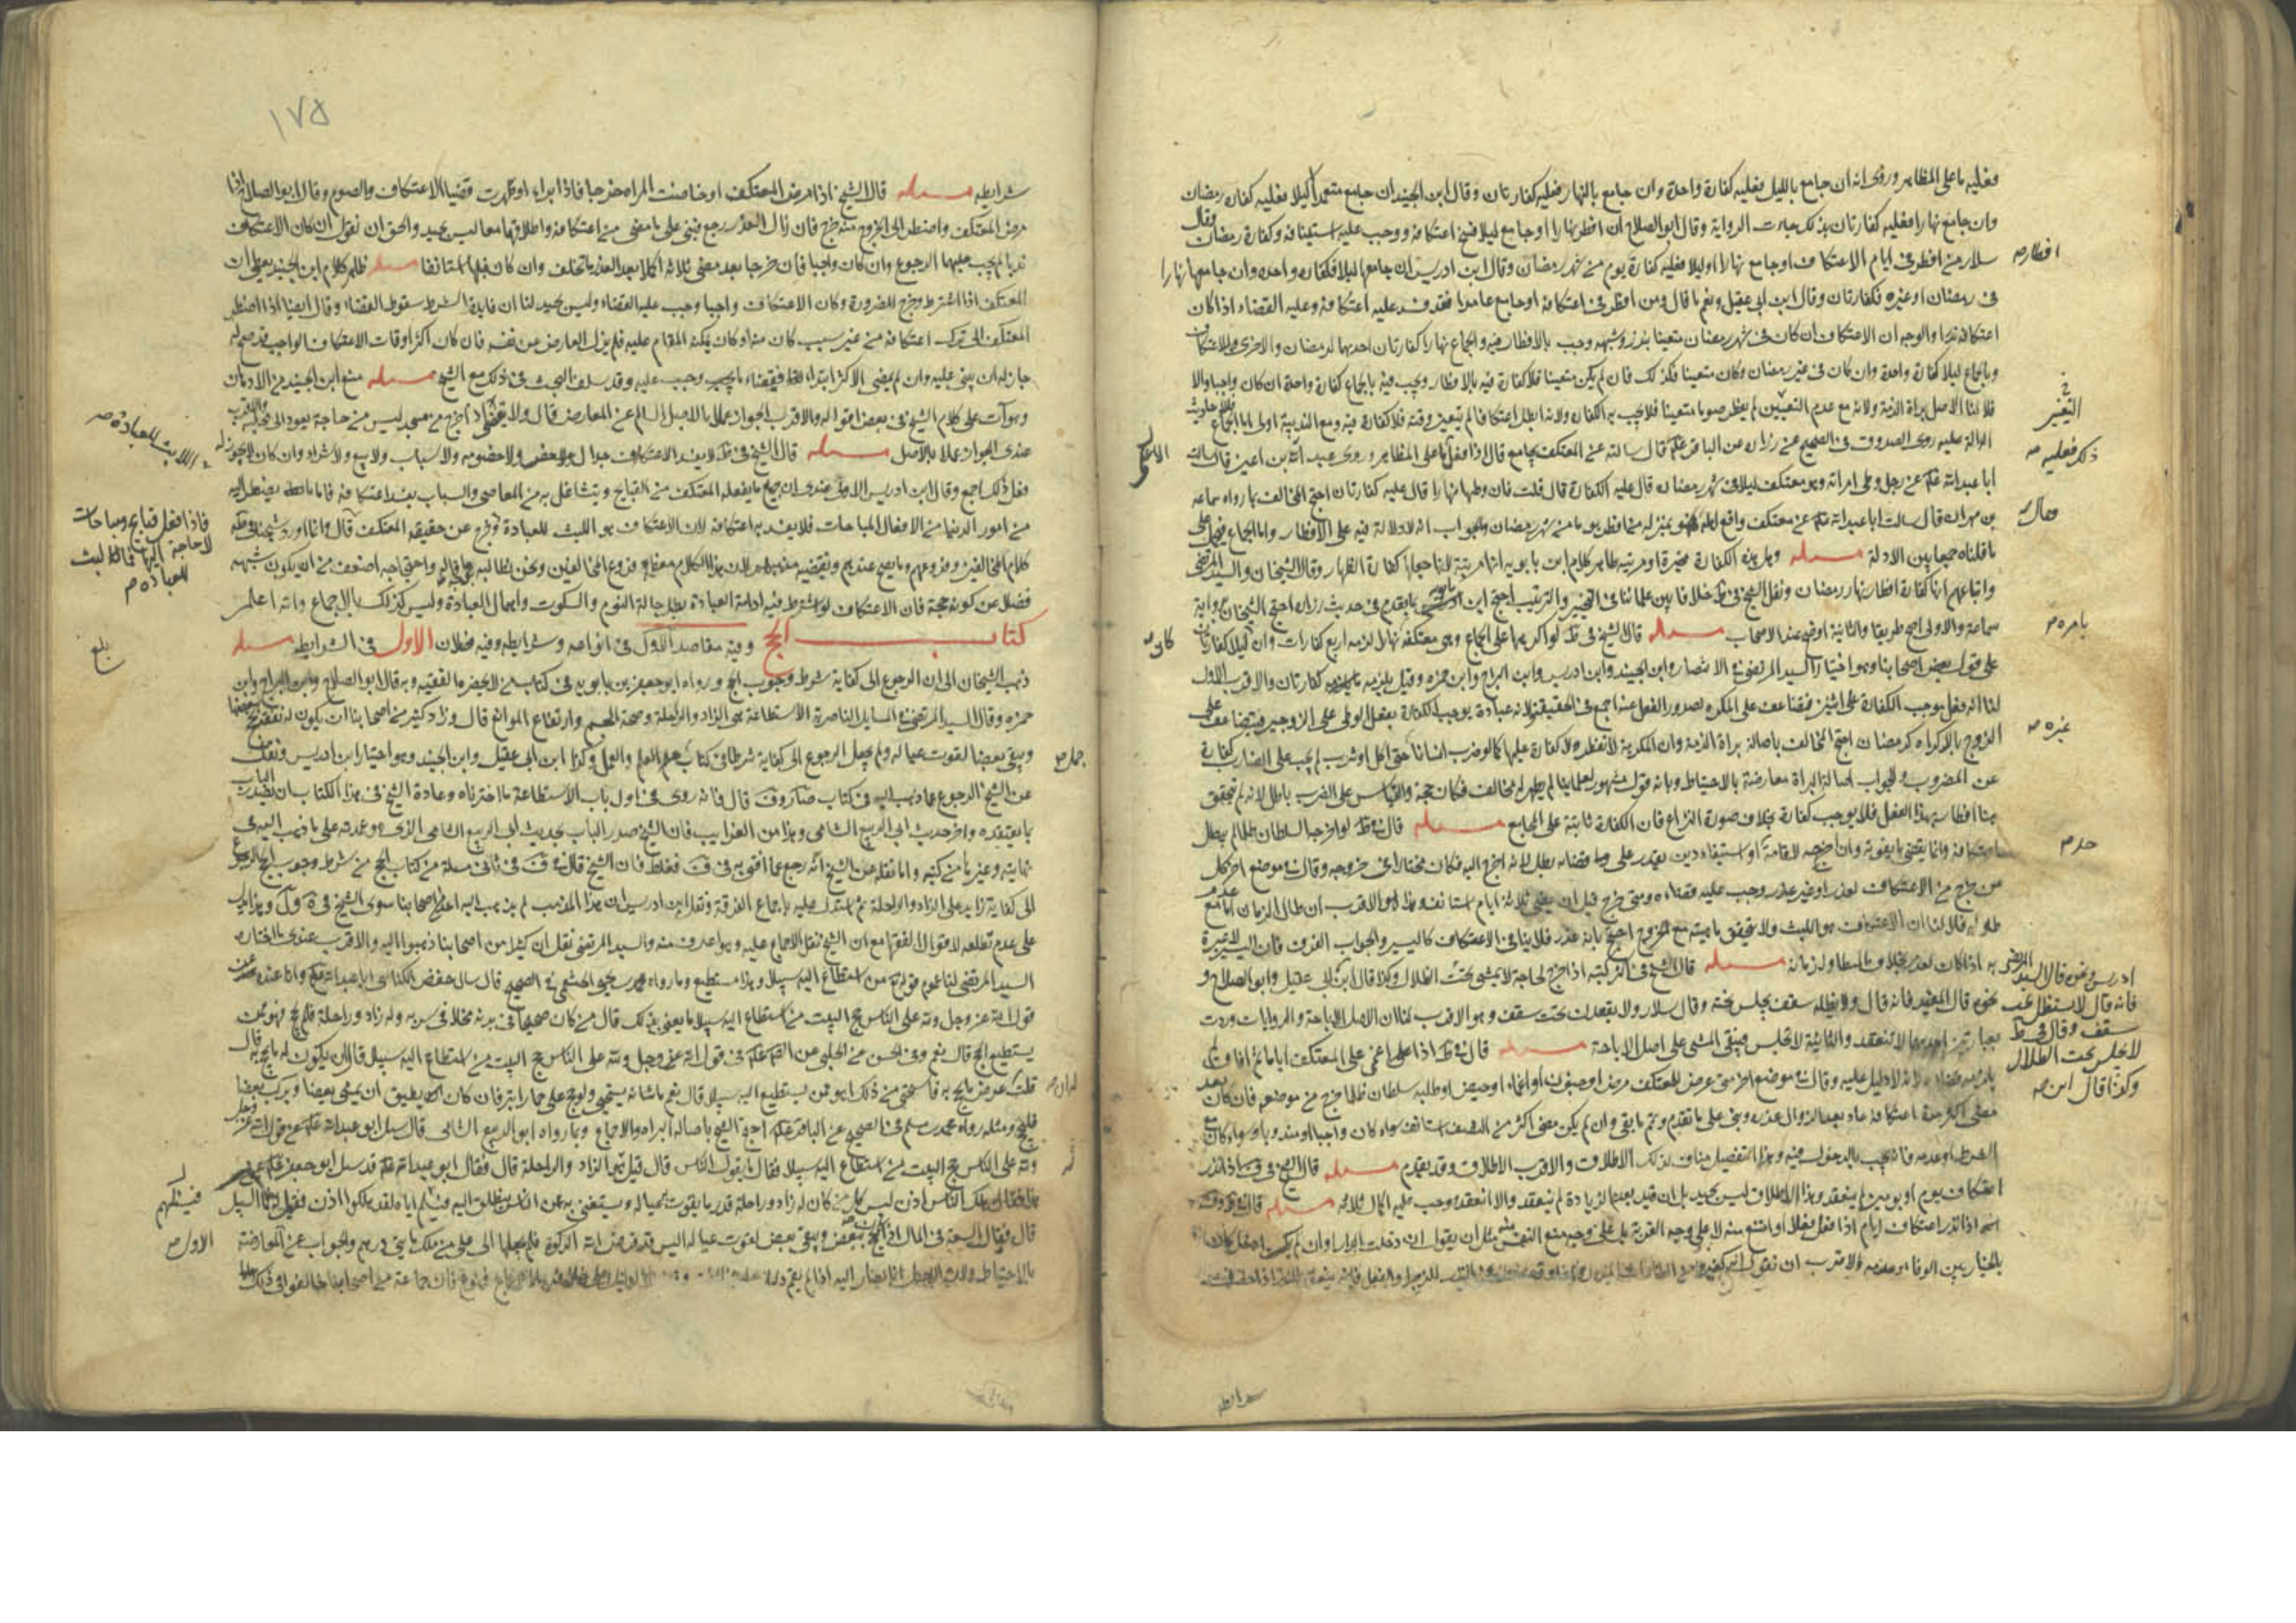 فعليه ما على المظاهر وروى انه ان جامع بالليل فعليه كفارة واحدة وان جامع بالنهار فعليه كفارتان وقال ابن الجنيد ان جامع متعمدا ليلا فعليه كفارة رمضان
وان جامع نهارا فعليه كفارتان بذلك جاءت الرواية وقال ابو الصلاح ان افطر نهارا او جامع ليلا فسخ اعتكافه ووجب عليه استينافه وكفارة رمضان وقال
سلار من افطر في ايام الاعتكاف او جامع نهارا او ليلا فعليه كفارة يوم من شهر رمضان وقال ابن ادريس ان جامعها ليلا فكفارة واحدة وان جامعها نهارا
في رمضان او غيره فكفارتان وقال ابن ابي عقيل ونعم ما قال ومن افطر في اعتكافه او جامع عامدا فقد فسد عليه اعتكافه وعليه القضاء اذا كان
اعتكافه نذرا والوجه ان الاعتكاف ان كان في شهر رمضان متعينا بنذر وشبهه وجب بالافطار فيه والجماع نهارا كفارتان احديهما لرمضان والاخرى للاعتكاف
وبالجماع ليلا كفارة واحدة وان كان في غير رمضان وكان متعينا فكذلك فان لم يكن متعينا فلا كفارة فيه بالافطار ويجب فيه بالجماع كفارة واحدة ان كان واجبا والا
فلا لنا الاصل براة الذمة ولانه مع عدم التعيين لم يفطر صوما متعينا فلا يجب به الكفارة ولانه ابطل اعتكافا لم يتعين وقته فلا كفارة فيه ومع الندبية اولى اما الجماع
الدالة عليه روى الصدوق في الصحيح عن زرارة عن الباقر قال سالته عن المعتكف يجامع قال اذا فعل فعليه ما على المظاهر وروى عبد الله بن اعين قال سالت
ابا عبد الله عن رجل وطى امراته وهو معتكف ليلا في شهر رمضان قال عليه الكفارة قال قلت فان وطيها نهارا قال عليه كفارتان احتج المخالف بما رواه سماعه
بن مهران قال سالت ابا عبد الله عن معتكف واقع اهله هو بمنزلة من افطر يوما من شهر رمضان والجواب انه لا دلالة فيه على الافطار واما الجماع فيحمل على
ما قلناه جمعا بين الادلة مسئله وهل هذه الكفارة مخيرة او مرتبة ظاهر كلام ابن بابويه انها مرتبة لانه جعلها كفارة الظهار وقال الشيخان والسيد المرتضى
واتباعهم انها كفارة افطار نهار رمضان ونقل الشيخ في ط خلافا بين علمائنا في التخيير والترتيب احتج ابن بابويه بما تقدم في حديث زرارة احتج الشيخان برواية
سماعة والاولى اصح طريقا والثانية اوضح عند الاصحاب مسئله قال الشيخ في ط لو اكرهها على الجماع وهي معتكفة نهارا لزمه اربع كفارات وان كان ليلا كفارتان
على قول بعض اصحابنا وهو اختيار السيد المرتضى في الانتصار وابن الجنيد وابن ادريس وابن البراج وابن حمزه وقيل يلزمه كفارتان والاقرب الاول
لنا انه فعل موجب الكفارة على اثنين فتضاعف على المكره لصدور الفعل عنه اجمع في الحقيقة ولانه عبادة يوجب الكفارة بفعل الوطي على الزوجين فيتضاعف على
الزوج بالاكراه كرمضان احتج المخالف باصالة براة الذمة وان المكرهة لا تفطر ولا كفارة عليها كما لو ضرب انسانا حتى اكل او شرب لم يجب على الضارب كفارة
عن المضروب والجواب اصالة البراة معارضة بالاحتياط وبانه قول مشهور لعلمائنا لم يظهر له مخالف فكان حجة والقياس على الضرب باطل لانه لم يتحقق
هنا افطار بهذا الفعل فلا يوجب كفارة بخلاف صورة النزاع فان الكفارة ثابتة على المجامع مسئله قال في ط لو اخرجه السلطان ظلما لم يبطل
اعتكافه وانما يقضي ما يفوته وان اخرجه لاقامة او استيفاء دين يقدر على قضائه بطل لانه احوج اليه فكان مختارا في خروجه وقال في موضع اخر كل
من خرج من الاعتكاف لعذر او غير عذر وجب عليه قضاءه ومتى خرج قبل ان يمضي ثلاثة ايام استانف وهذا هو الاقرب ان طال الزمان اما مع عدم
طوله فلا لنا ان الاعتكاف هو اللبث ولا يتحقق ماهيته مع الخروج احتج بانه عذر فلا ينافي الاعتكاف كاليسير والجواب الفرق فان اليسير لا عبرة
به اذا كان لعذر بخلاف المتطاول زمانه مسئله قال الشيخ في النهاية اذا خرج لحاجة لا يمشي تحت الظلال وكذا قال ابن ابي عقيل وابو الصلاح و
نحوه قال المفيد فانه قال ولا يظله سقف يجلس تحته وقال سلار ولا يقعد تحت سقف وهو الاقرب لنا ان الاصل الاباحة والروايات وردت
بعبارتين احديهما لا تنعقد والثانية لا تجلس فيبقى المشي على اصل الاباحة مسئله قال في ط اذا اغمى على المعتكف اياما ثم افاق لم
يلزمه قضاءه لانه لا دليل عليه وقال في موضع اخر متى عرض للمعتكف مرض او جنون او اغماء او حيض او طلبه سلطان ظلما خرج من موضعه فان كان بعد
مضى اكثر مدة اعتكافه عاد بعد زوال عذره وبنى على ما تقدم وتمم ما بقى وان لم يكن مضى اكثر من النصف استانف سواء كان واجبا او مندوبا وسواء كان مع
الشرط او عدمه فانه يجب بالدخول فيه وهذا التفصيل مناف لذلك الاطلاق والاقرب الاطلاق وقد تقدم مسئله قال الشيخ في ف اذا نذر
اعتكاف يوم او يومين لم ينعقد وهذا الاطلاق ليس بجيد بل ان قيد بعدم الزيادة لم ينعقد والا انعقد ووجب عليه اكمال ثلاثة مسئله
اذا نذر اعتكاف ايام اذا فعل فعلا او امتنع منه لا على وجه القربة بل على وجه منع النفس مثل ان يقول ان دخلت الدار او ان لم
بالخيار بين الوفاء وعدمه والاقرب ان نقول
افطار
التعيين
ذكر فعليه
وقال
بامره
غيره
ادريس ونحوه قال السيد المرتضى
فانه قال لا يستظل تحت
سقف وقال في ط
لا يجلس تحت الظلال
وكذا قال ابن
١٧٥
شرايطه مسئله قال الشيخ اذا مرض المعتكف او حاضت المراة خرجا فاذا ابراء او طهرت قضيا الاعتكاف والصوم وقال ابو الصلاح اذا
مرض المعتكف واضطر الى الخروج منه خرج فان زال العذر رجع فبنى على ما مضى من اعتكافه واطلاقهما معا ليس بجيد والحق ان نقول ان كان الاعتكاف
ندبا لم يجب عليهما الرجوع وان كان واجبا فان خرجا بعد مضى ثلاثة اكملا بعد العذر ما تخلف وان كان قبلها استانفا مسئله ظاهر كلام ابن الجنيد يعطي ان
المعتكف اذا اشترط وخرج للضرورة وكان الاعتكاف واجبا وجب عليه القضاء وليس بجيد لنا ان فايدة الشرط سقوط القضاء وقال ايضا اذا اضطر
المعتكف الى ترك اعتكافه من غير سبب كان منه او كان يمكنه المقام عليه فلم يزل العارض عن نفسه فان كان اكثر اوقات الاعتكاف الواجب قد صح له
جاز له ان يبنى عليه وان لم يمضى الاكثر ابتداء بقضاء ما يجب وجب عليه وقد سلف البحث في ذلك مع الشيخ مسئله منع ابن الجنيد من الادهان
وهو آت على كلام الشيخ في بعض اقواله والاقرب الجواز عملا بالاصل السالم عن المعارض قال ولا يقضى اذا خرج من مسجد ليس من حاجة يعود الى مجلسه والاقرب
عندى الجواز عملا بالاصل مسئله قال الشيخ في ط لا يفسد الاعتكاف جدال ولا خصومه ولا سباب ولا بيع ولا شراء وان كان لا يجوز له
فعل ذلك اجمع وقال ابن ادريس الاولى عندى ان جميع ما يفعله المعتكف من القبايح ويتشاغل به من المعاصي والسباب يفسد اعتكافه فاما ما يضطر اليه
من امور الدنيا من الافعال المباحات فلا يفسد به اعتكافه لان الاعتكاف هو اللبث للعبادة خرج عن حقيقة المعتكف قال وانما اورد شيخنا في ط
كلام المخالفين وفروعهم وما يصح عندهم ويقتضيه مذهبهم لان هذا الكلام معظمه فروع المخالفين ونحن نطالبه بما قاله واحتجاجه اضعف من ان يكون شبهه
فضلا عن كونه حجة فان الاعتكاف لو اشترط فيه ادامة العبادة بطل حالة النوم والسكوت واهمال العبادة وليس كذلك بالاجماع والله اعلم
كتاب الحج وفيه مقاصد الاول في انواعه وشرايطه وفيه فصلان الاول في الشرايط مسئله
ذهب الشيخان الى ان الرجوع الى كفاية شرط وجوب الحج ورواه ابو جعفر بن بابويه في كتاب من لا يحضره الفقيه وبه قال ابو الصلاح وابن البراج وابن
حمزه وقال السيد المرتضى في المسايل الناصرية الاستطاعة هي الزاد والراحلة وصحة الجسم وارتفاع الموانع قال وزاد كثير من اصحابنا ان يكون له نفقة
ويبقى بعضها لقوت عياله ولم يجعل الرجوع الى كفاية شرطا في كتاب العلم والعمل وكذا ابن ابي عقيل وابن الجنيد وهو اختيار ابن ادريس ونقل
عن الشيخ الرجوع عما ذهب اليه في كتاب صا وف قال فانه روى في اول باب الاستطاعة ما اخترناه وعادة الشيخ في هذا الكتاب ان يصدر الباب
بما يعتقده واخر حديث ابي الربيع الشامي وهذا من الغرايب فان الشيخ صدر الباب بحديث ابي الربيع الشامي الذي هو عمدته على ما ذهب اليه في
نهايته وغيرها من كتبه واما نقله عن الشيخ انه رجع عما افتى به في ف فغلط فان الشيخ قال في ف في ثاني مسئلة من كتاب الحج من شرط وجوب الحج الرجوع
الى كفاية زايد على الزاد والراحلة ثم استدل عليه باجماع الفرقة ونقل ابن ادريس ان هذا المذهب لم يذهب اليه احد من اصحابنا سوى الشيخ في ية
على عدم تطلعه لاقوال الفقهاء مع ان الشيخ نقل الاجماع عليه وهو اعرف منه والسيد المرتضى نقل ان كثيرا من اصحابنا ذهبوا اليه والاقرب عندى ما اختاره
السيد المرتضى لنا عموم قوله تع من استطاع اليه سبيلا وهذا مستطيع وما رواه محمد بن يحيى الخثعمي في الصحيح قال سال حفص الكناسي ابا عبد الله وانا عنده عن
قول الله عز وجل ولله على الناس حج البيت من استطاع اليه سبيلا ما يعني بذلك قال من كان صحيحا في بدنه مخلى في سربه وله زاد وراحلة فلم يحج فهو ممن
يستطيع الحج قال نعم وفي الحسن عن الحلبي عن الصادق في قول الله عز وجل ولله على الناس حج البيت من استطاع اليه سبيلا قال ان يكون له ما يحج به قال
قلت من عرض عليه ما يحج به فاستحيى من ذلك اهو ممن يستطيع اليه سبيلا قال نعم ما شانه يستحيى ولو يحج على حمار ابتر فان كان يطيق ان يمشي بعضا ويركب بعضا
فليحج ومثله رواه محمد بن مسلم في الصحيح عن الباقر احتج الشيخ باصالة البراءة والاجماع وبما رواه ابو الربيع الشامي قال سئل ابو عبد الله عن قول الله عز
ولله على الناس حج البيت من استطاع اليه سبيلا فقال ما يقول الناس قال قيل له الزاد والراحلة قال فقال ابو عبد الله قد سئل ابو جعفر عن
هذا فقال هلك الناس اذن ليس كل من كان له زاد وراحلة قدر ما يقوت عياله ويستغني به عن الناس ينطلق اليه فيسلبهم اياه لقد هلكوا اذن فقيل له فما السبيل
قال فقال السعة في المال اذا كان يحج ببعض ويبقى بعض لقوت عياله اليس قد فرض الله الزكوة فلم يجعلها الا على من ملك مايتي درهم والجواب عن المعارضة
بالاحتياط
اللابث للعبادة
فاذا فعل قبايح ومباحات
لا حاجة اليها فما اللابث
للعبادة
بلغ
الاول